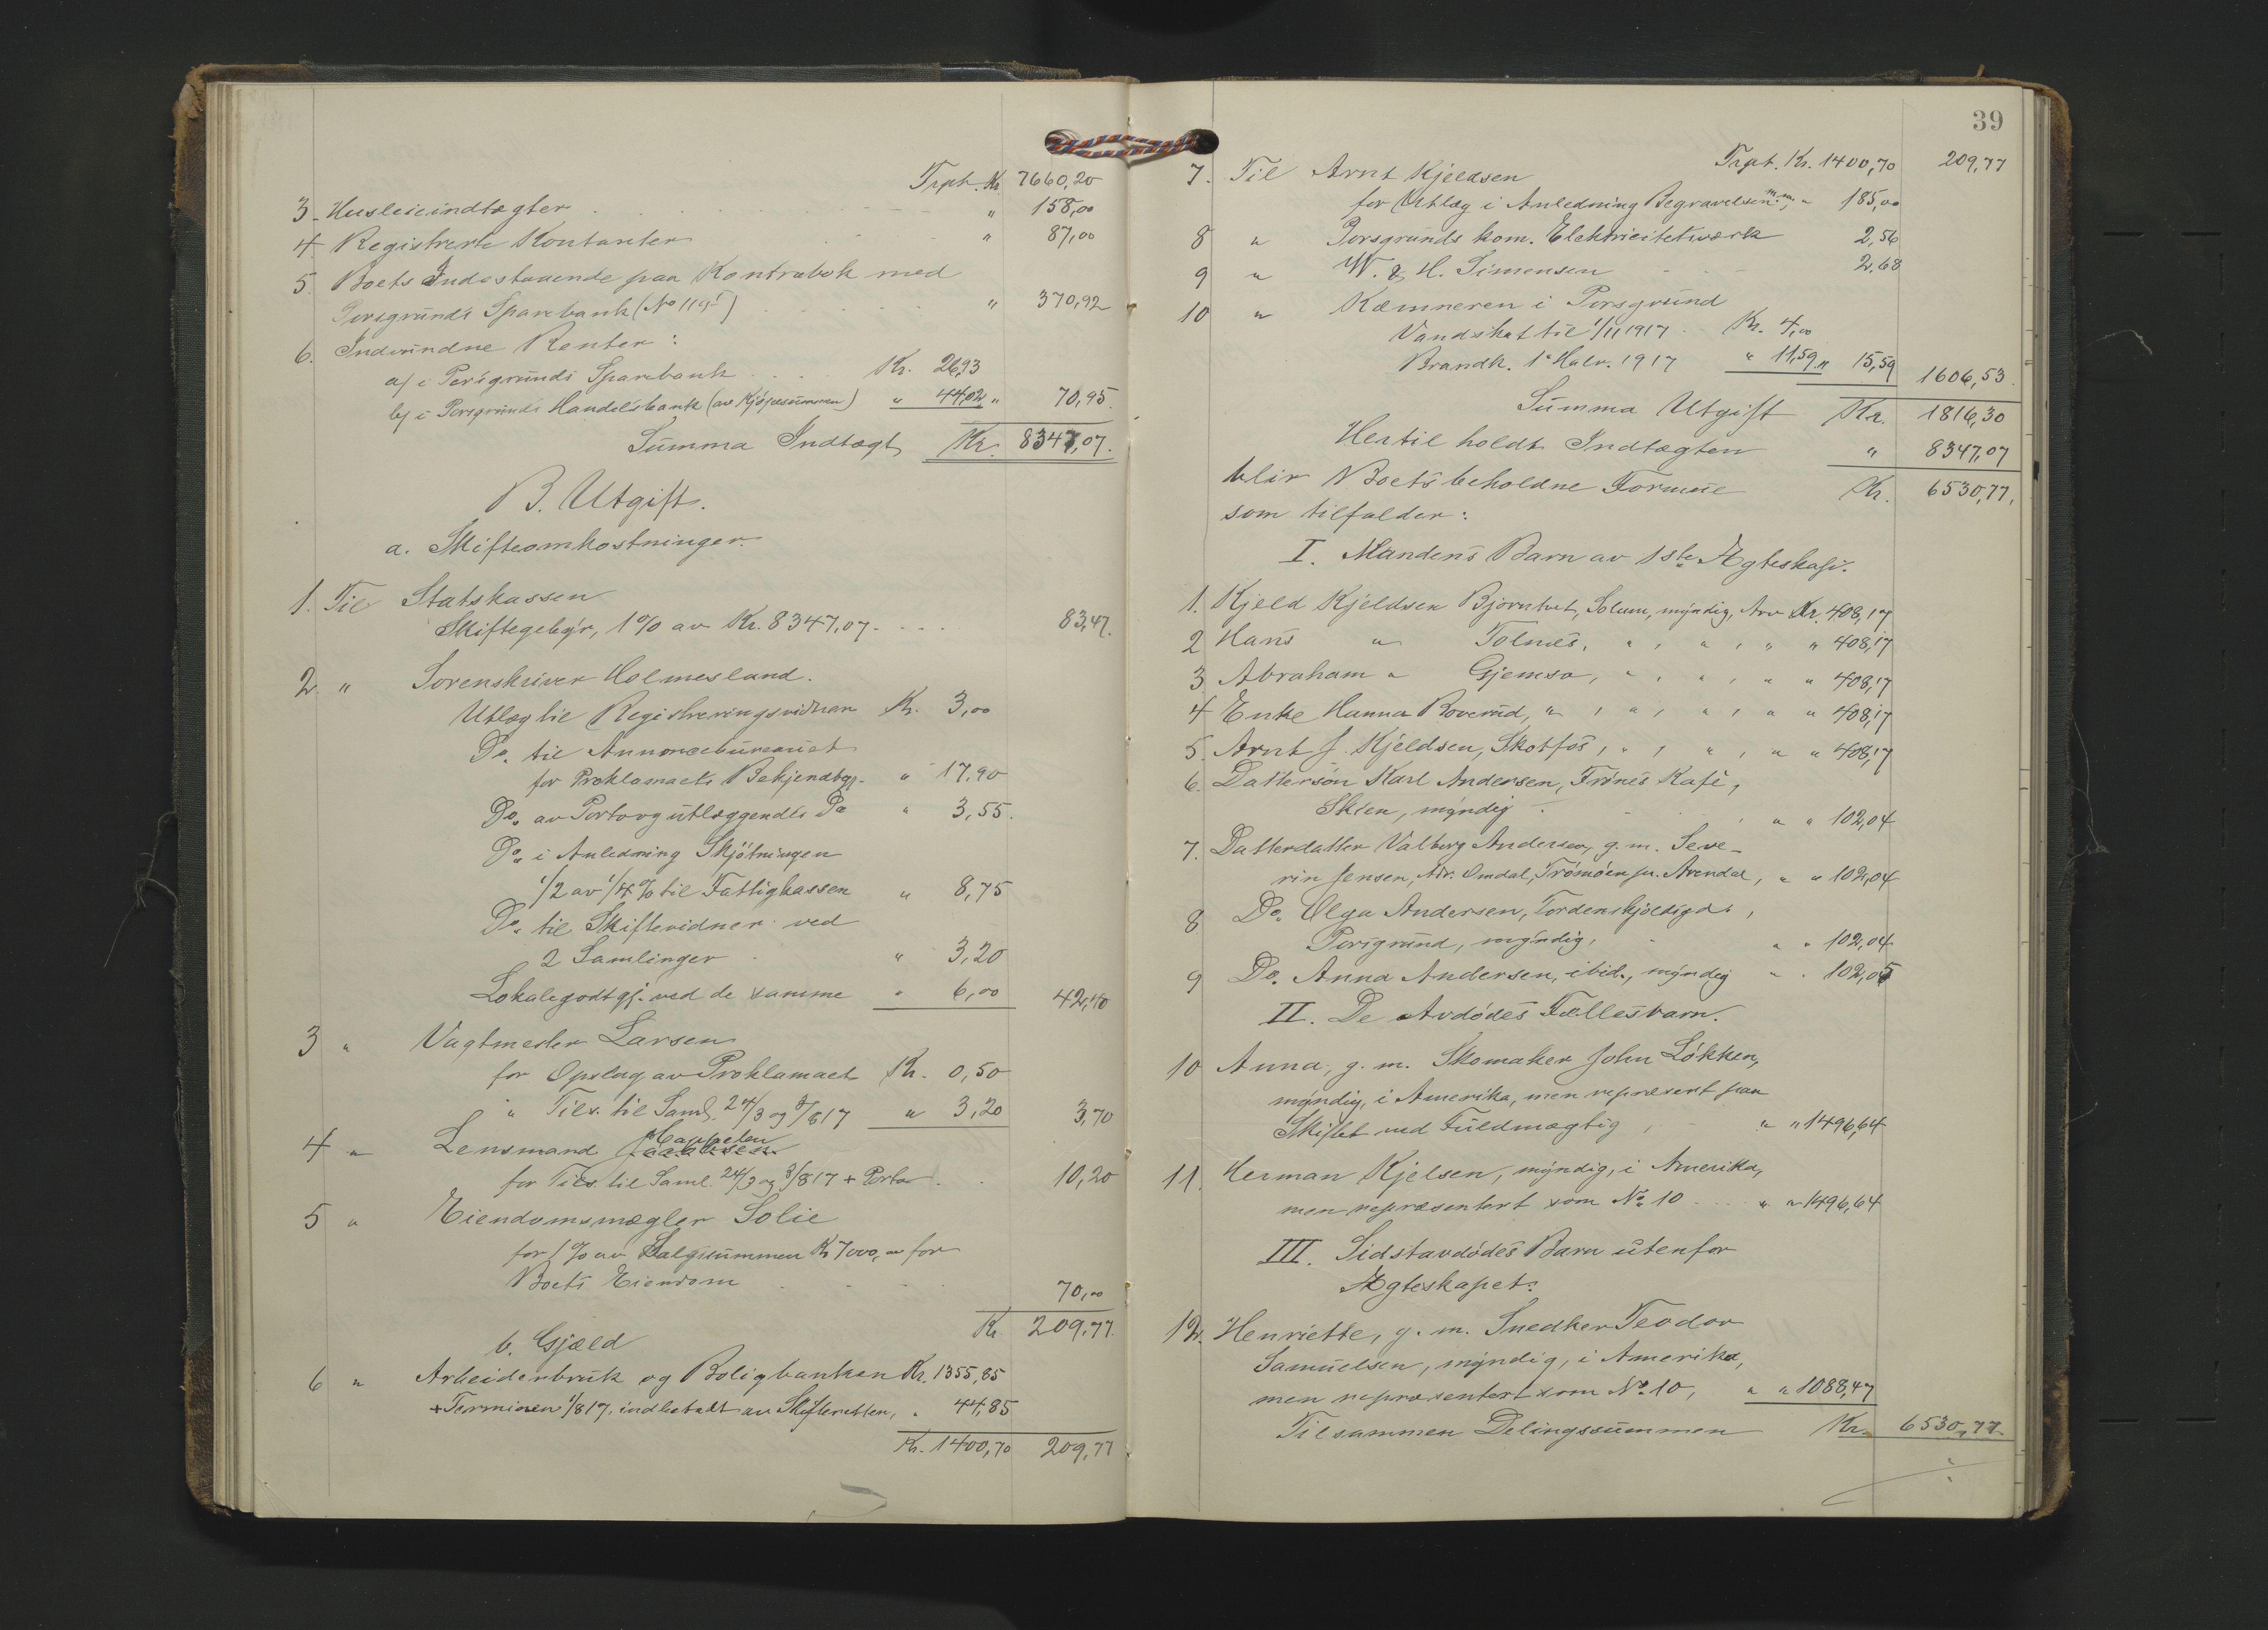 Trpt. Kr. 7660,20
3. Husleieindtægter " 158,00
4. Registrerte Kontanter " 87,00
5. Boets Indestaaende paa Kontrabok med
Porsgrunds Sparebank (No 1195) " 370,92
6. Indvundne Renter:
a/ i Porsgrunds Sparebank Kr. 26,93
b/ i Porsgrunds Handelsbank (av Kjøpesummen) " 44,02 " 70,95
Summa Indtægt Kr. 8347,07.
B. Utgift.
a. Skifteomkostninger.
1. Til Statskassen
Skiftegebyr, 1% av Kr. 8347,07. 83,47.
2. " Sorenskriver Holmesland.
Utlæg til Registreringsvidner Kr. 3,00
Do. til Annoncebureauet
for Proklamaets Bekjendtgj. " 17,90
Do. av Porto og utlæggendes Do " 3,55.
Do. i Anledning Skjøtningen
1/2 av 1/4% til Fattigkassen " 8,75
Do. til Skiftevidner ved
2 Samlinger " 3,20
Lokalegodtgj. ved de samme " 6,00 42,40
3 " Vagtmester Larsen
for Opslag av Proklamaet Kr. 0,50
" Tils. til Saml. 24/3 og 3/817 " 3,20 3,70
4 " Lensmand
for Tils. til Saml. 24/3 og 3/817 + Porto 10,20
5 " Eiendomsmægler Solie
for 1% av Salgssummen Kr 7000,00 for
Boets Eiendom 70,00
Kr 209,77.
b. Gjæld
6 " Arbeiderbruk og Boligbanken Kr. 1355,85
+ Terminen 1/817, indbetalt av Skifteretten, " 44,85
Kr. 1400,70 209,77
39
Trpt. Kr. 1400,70 209,77
7. Til Arnt Kjeldsen
for Utlæg i Anledning Begravelsen m.m., " 185,00
8 " Porsgrunds kom. Elektricitetsværk 2,56
9 " W. & H. Simensen 2,68
10 " Kæmneren i Porsgrund
Vandskat til 1/11 1917 Kr. 4,00
Brandk. 1ste Halv. 1917 " 11,59 " 15,59 1606,53.
Summa Utgift Kr. 1816,30
Hertil holdt Indtægten " 8347,07
blir Boets beholdne Formue Kr. 6530,77,
som tilfalder:
I. Mandens Barn av 1ste Ægteskap.
1. Kjeld Kjeldsen Bjørntvet, Solum, myndig, Arv Kr. 408,17
2 Hans " Tolnes, " , " , " " 408,17
3 Abraham " Gjemsø, " , " , " " 408,17
4 Enke Hanna Boverud, " , " , " , " " 408,17
5. Arnt J. Kjeldsen, Skotfos, " , " , " " 408,17
6. Dattersøn Karl Andersen, Frónés Kafé,
Skien, myndig , " " 102,04
7. Datterdatter Valborg Andersen, g. m. Seve-
rin Jensen, Adr. Omdal, Tromøen pr. Arendal, " " 102,04
8 Do. Olga Andersen, Tordenskjoldsgd. ,
Porsgrund, myndig, " " 102,04
9 Do. Anna Andersen, ibid., myndig " " 102,05
II. De Avdødes Fællesbarn.
10 Anna, g. m. Skomaker John Løkken,
myndig, i Amerika, men repræsert paa
Skiftet ved Fuldmægtig , " " 1496,64
11. Herman Kjelsen, myndig, i Amerika,
men repræsentert som No. 10 " " 1496,64
III. Sidstavdødes Barn utenfor
Ægteskapet:
12. Henriette, g. m. Snedker Teodor
Samuelsen, myndig, i Amerika,
men repræsentert som No. 10, " " 1088,47
Tilsammen Delingssummen Kr. 6530,77